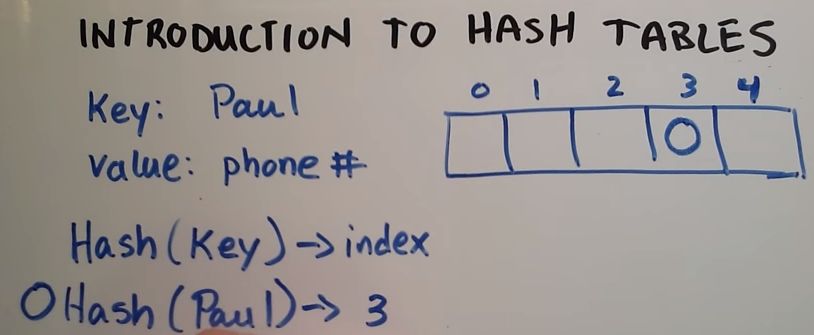 INTRODUCTION TO HASH TABLES
Key: Paul
0 1 2 3 4
value: phone #
O
Hash (Key) -> index
O Hash (Paul) -> 3